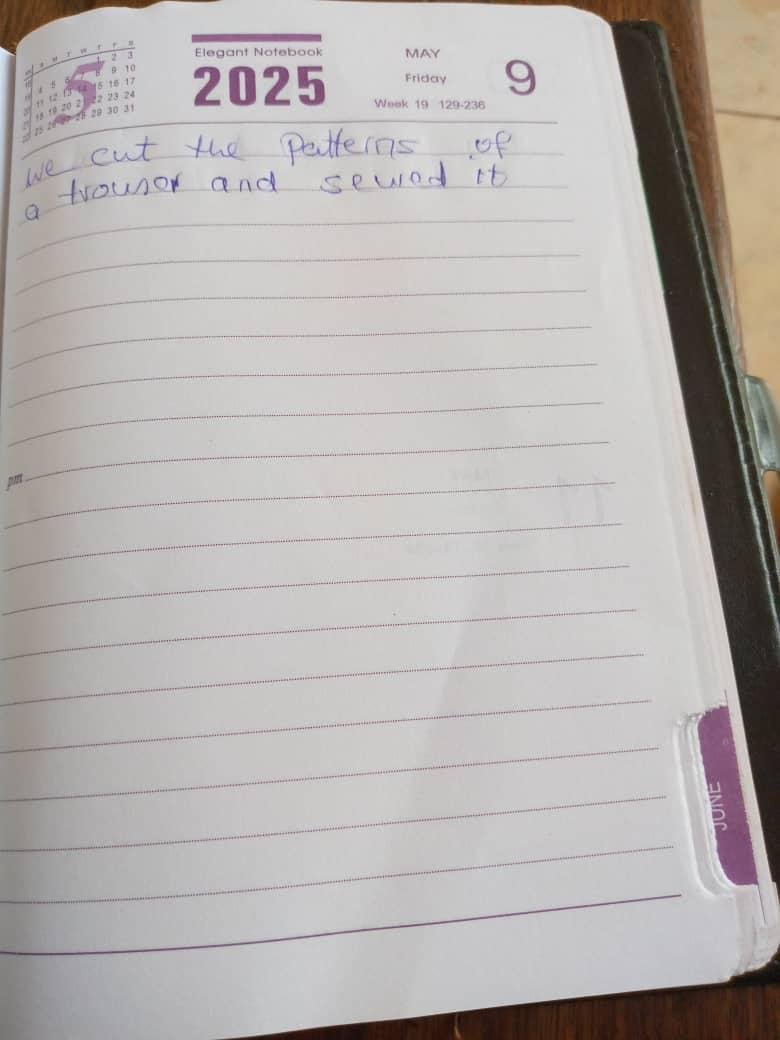 Elegant Notebook
2025
MAY
Friday
9
Week 19 129-236
5
S M T W T F S
1 2 3
4 5 6 8 9 10
11 12 13 14 15 16 17
18 19 20 21 22 23 24
25 26 27 28 29 30 31
we cut the patterns of
a trouser and sewed it
pm
JUNE